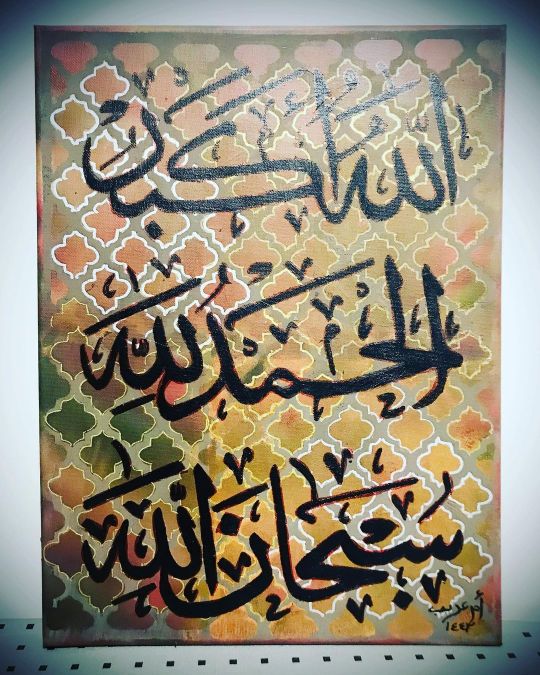 الله أكبر
الحمد لله
سبحان الله
١٤٤٣